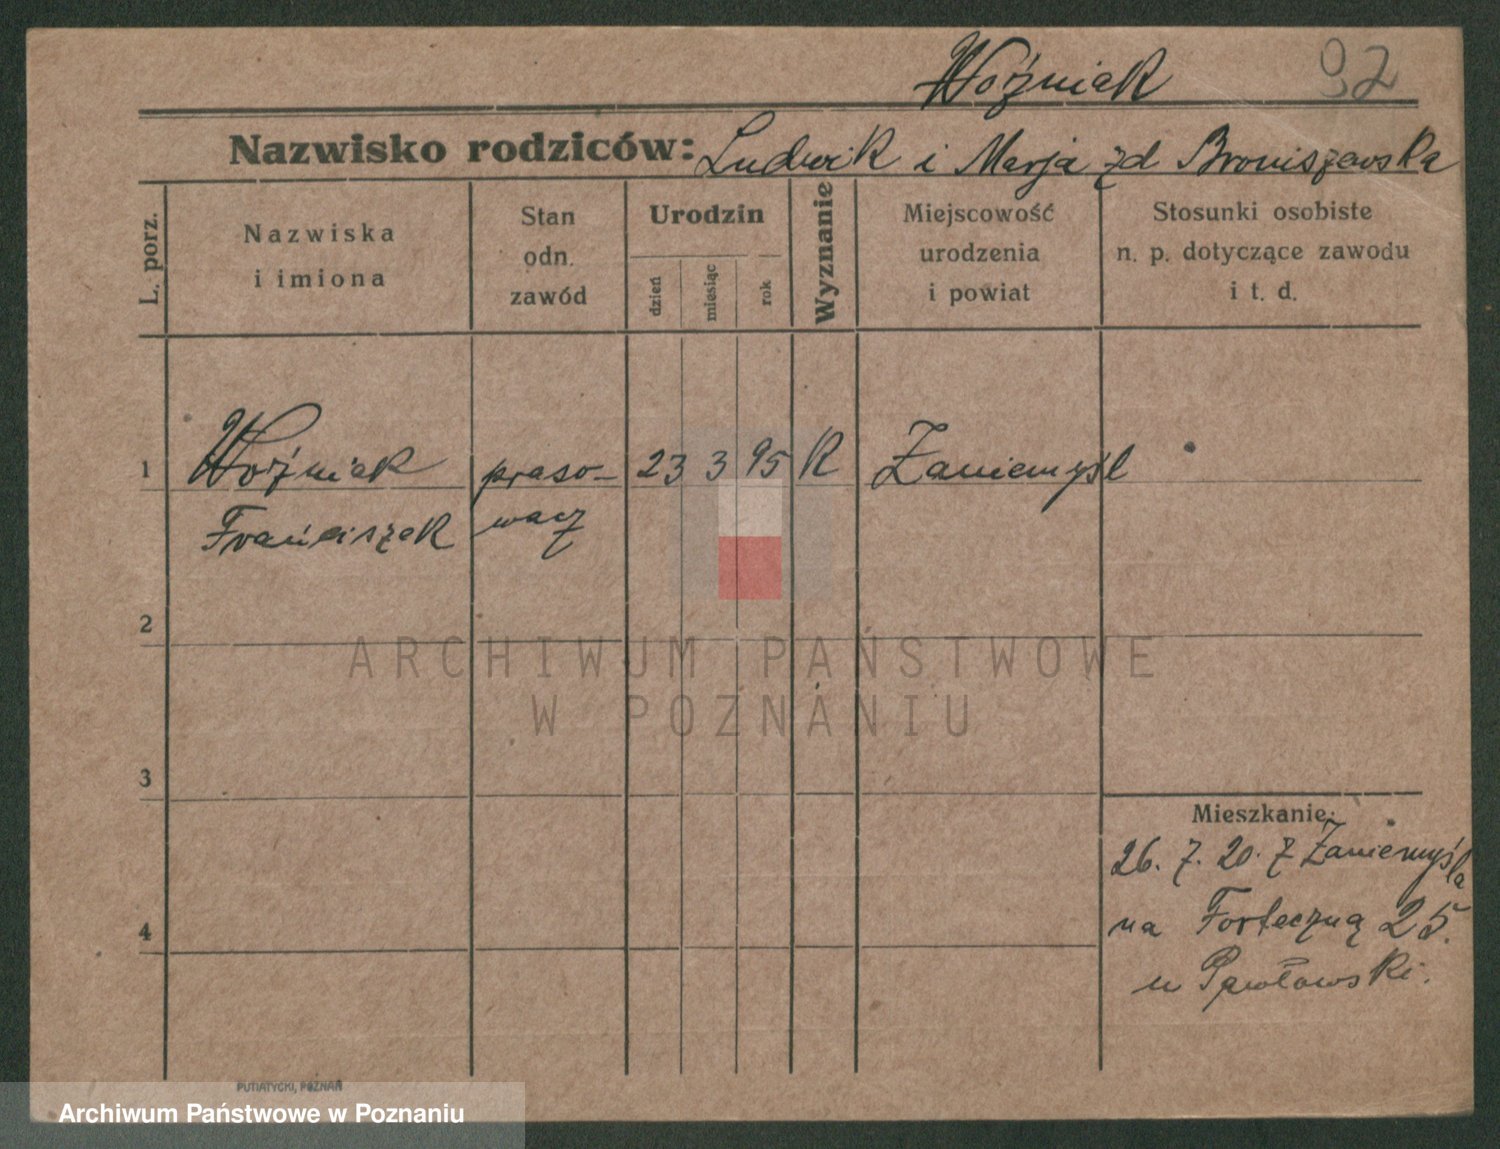 Woźniak 92
Nazwisko rodziców: Ludwik i Marja zd Broniszewska
L. porz.
Nazwiska
i imiona
Stan
odn.
zawód
Urodzin
dzień
miesiąc
rok
Wyznanie
Miejscowość
urodzenia
i powiat
Stosunki osobiste
n. p. dotyczące zawodu
i t. d.
1 Woźniak praso- 23 3 95 R Zaniemyśl
Franciszek wacz
2
ARCHIWUM PAŃSTWOWE
W POZNANIU
3
Mieszkanie:
26. 7. 20. z Zaniemyśla
na Forteczną 25.
u Pawłowski.
4
PUTIATYCKI, POZNAŃ
Archiwum Państwowe w Poznaniu